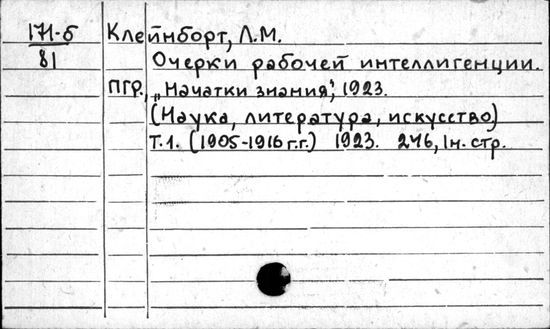 171-б Клейнборт, Л.М.
81 Очерки рабочей интеллигенции.
ПГР., „Начатки знания", 1923.
(Наука, литература, искусство)
Т.1. (1905-1916 г.г.) 1923. 246, 1н. стр.